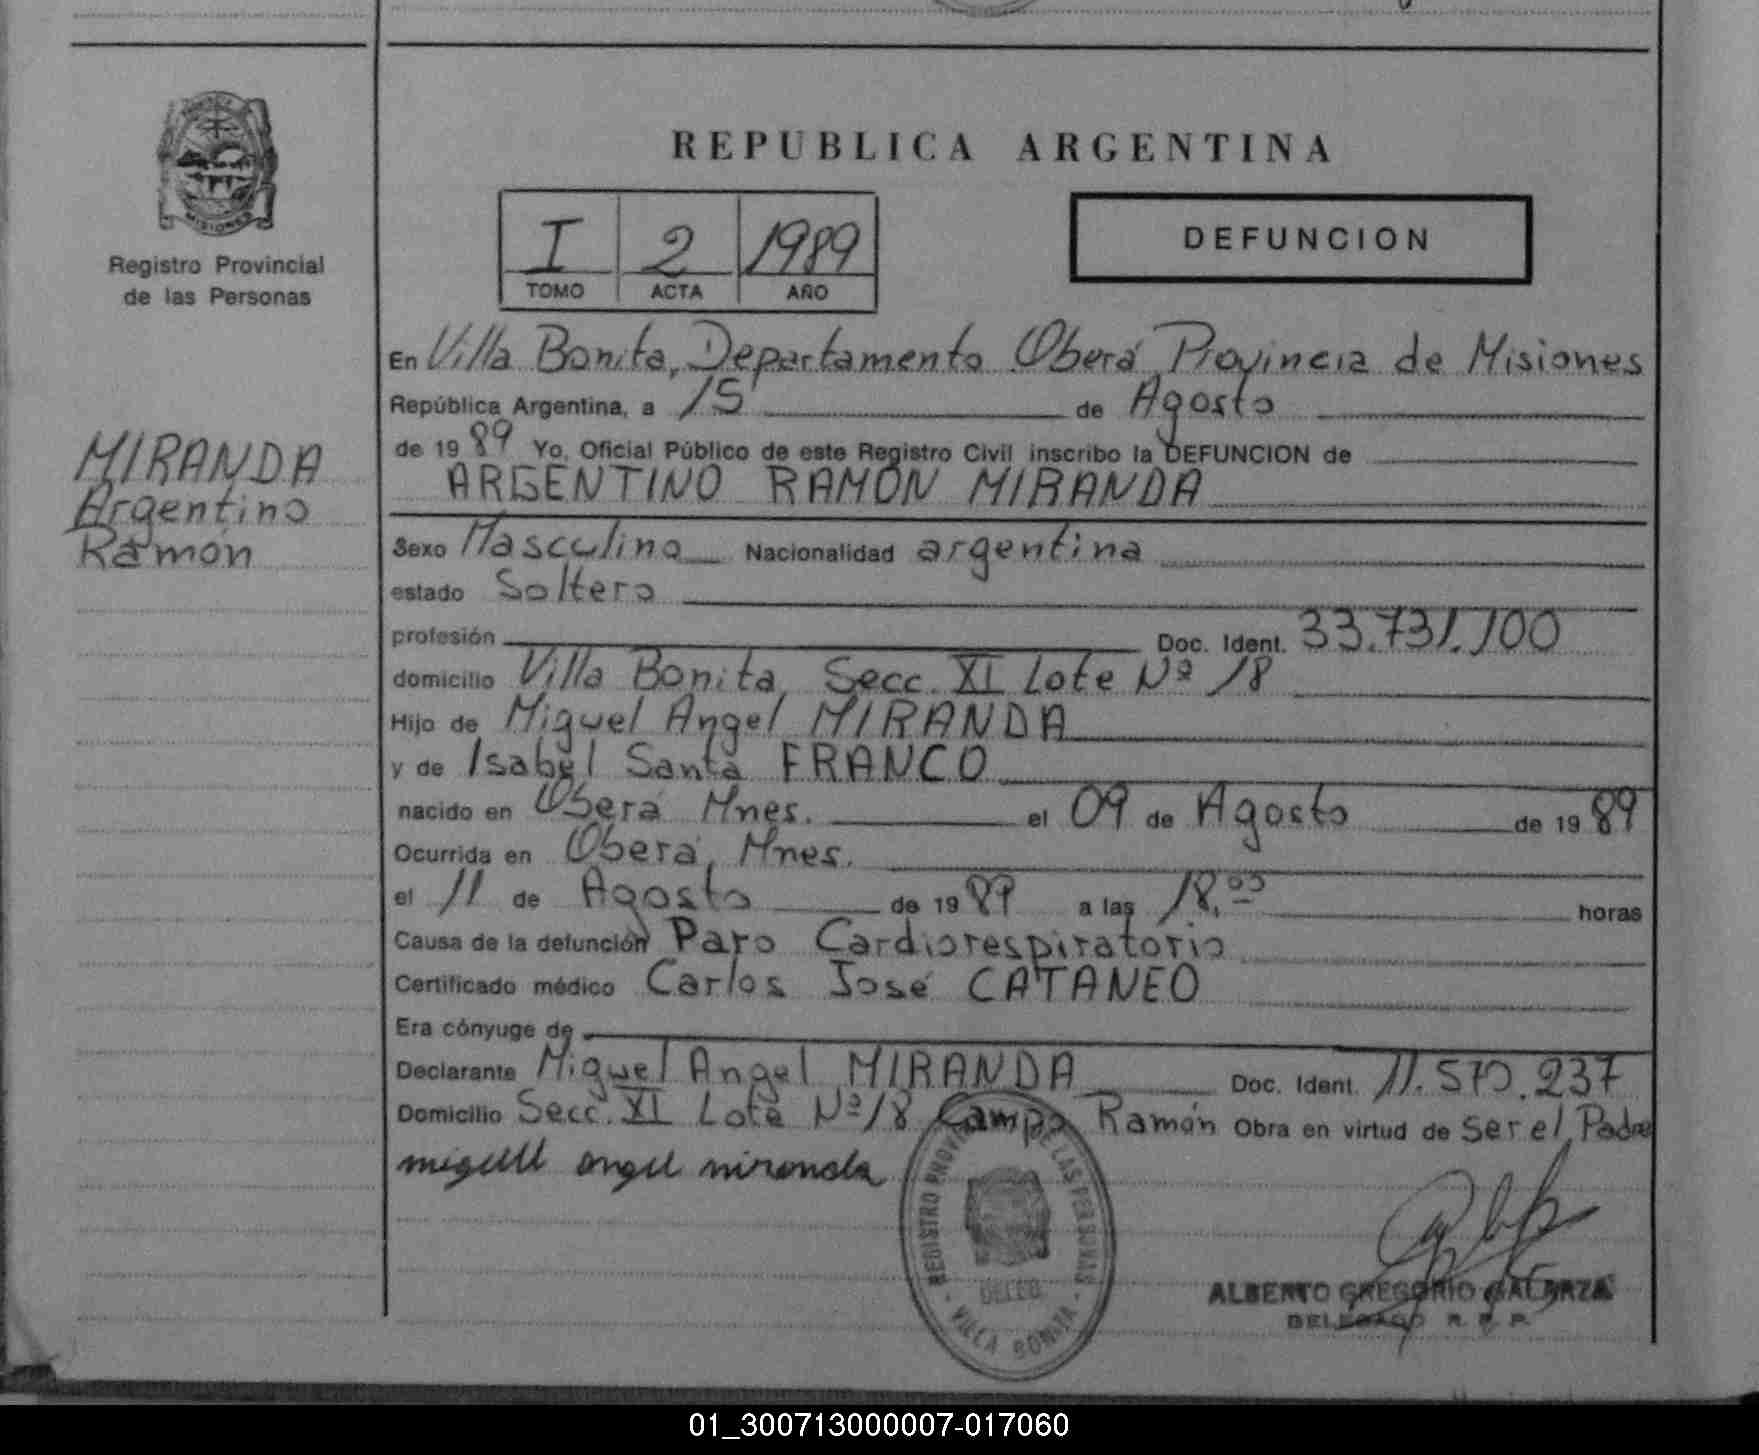 MISIONES
Registro Provincial
de las Personas
MIRANDA
Argentino
Ramón
REPUBLICA ARGENTINA
I 2 1989
TOMO ACTA AÑO
DEFUNCION
En Villa Bonita, Departamento Oberá Provincia de Misiones
República Argentina, a 15 de Agosto
de 1989 Yo, Oficial Público de este Registro Civil inscribo la DEFUNCION de
ARGENTINO RAMÓN MIRANDA
Sexo Masculino Nacionalidad argentina
estado Soltero
profesión Doc. Ident. 33.731.100
domicilio Villa Bonita, Secc. XI Lote Nº 18
Hijo de Miguel Angel MIRANDA
y de Isabel Santa FRANCO
nacido en Oberá Mnes. el 09 de Agosto de 1989
Ocurrida en Oberá, Mnes.
el 11 de Agosto de 1989 a las 18,00 horas
Causa de la defunción Paro Cardiorespiratorio
Certificado médico Carlos José CATANEO
Era cónyuge de
Declarante Miguel Angel MIRANDA Doc. Ident. 11.570.237
Domicilio Secc. XI Lote Nº 18 Campo Ramón Obra en virtud de ser el Padre
miguel angel miranda
REGISTRO PROVINCIAL DE LAS PERSONAS
DELEG.
VILLA BONITA
ALBERTO GREGORIO GALARZA
DELEGADO R. P. P.
01_300713000007-017060